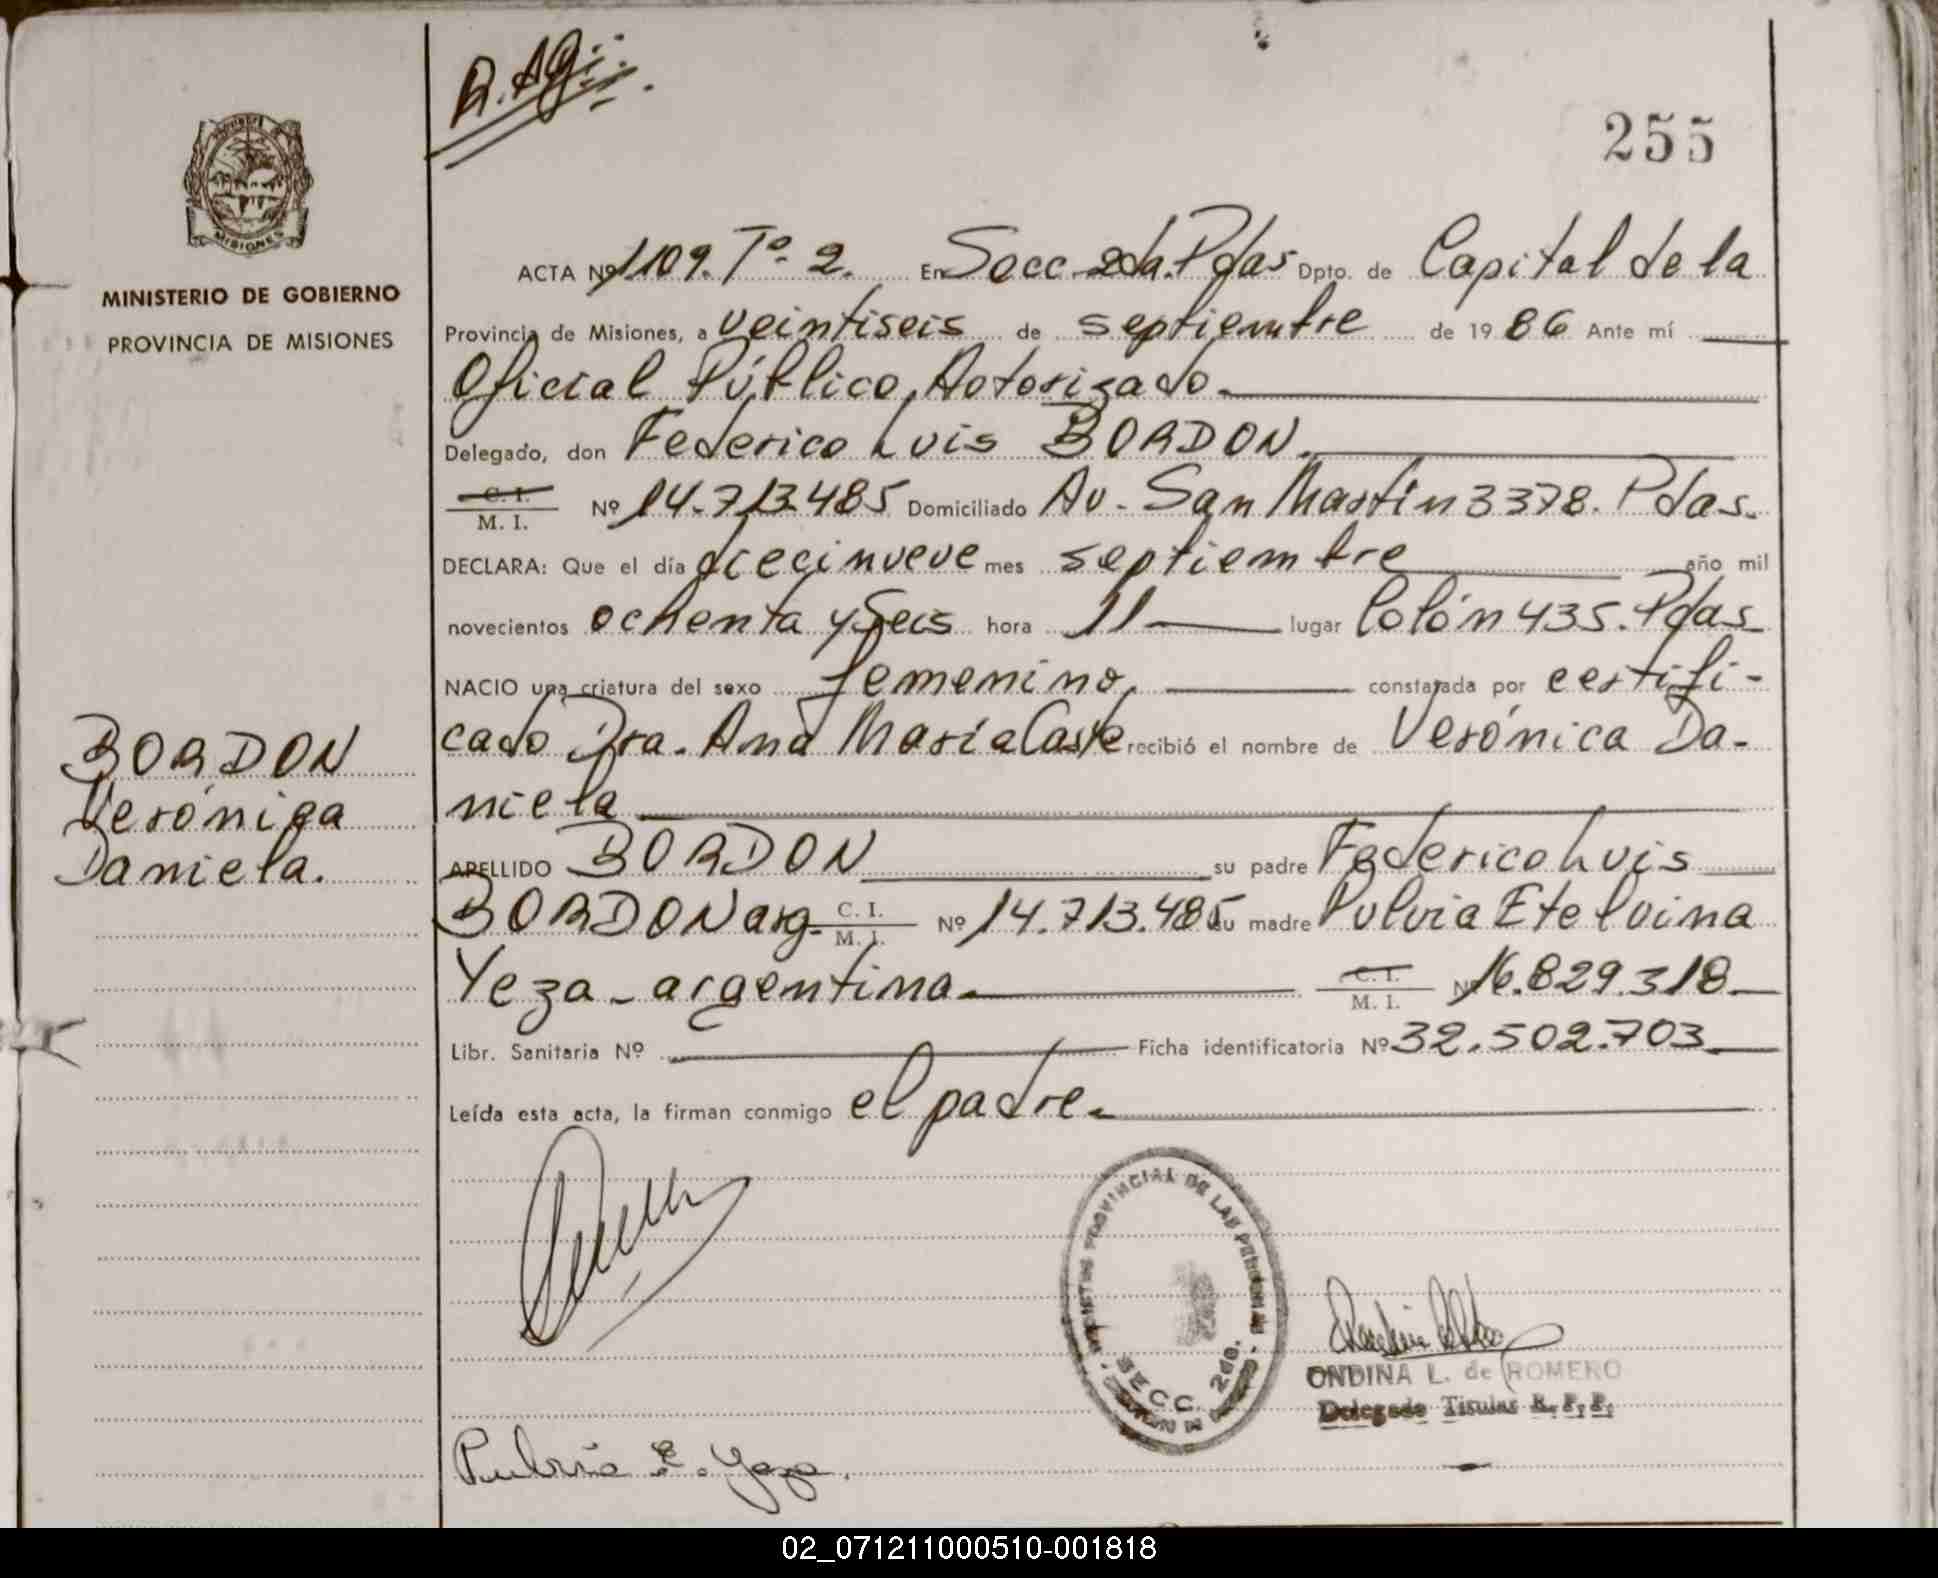 R. Ag.
255
MISIONES
MINISTERIO DE GOBIERNO
PROVINCIA DE MISIONES
ACTA Nº 1109. Tº. 2. En Secc. 2da. Pdas Dpto. de Capital de la
Provincia de Misiones, a veintiseis de septiembre de 1986 Ante mí
Oficial Público Autorizado.
Delegado, don Federico Luis BORDON.
C. I.
M. I. Nº 14.713.485 Domiciliado Av. San Martín 3378. Pdas.
DECLARA: Que el día diecinueve mes septiembre año mil
novecientos ochenta y Seis hora 11 lugar Colón 435. Pdas
NACIO una criatura del sexo femenino, constatada por certifi-
cado Dra. Ana María recibió el nombre de Verónica Da-
niela
BORDON
Verónica
Daniela.
APELLIDO BORDON su padre Federico Luis
BORDON arg. C. I.
M. I. Nº 14.713.485 su madre Pulvia Etelvina
Yeza - argentina. C. I.
M. I. Nº 16.829.318
Libr. Sanitaria Nº Ficha identificatoria Nº 32.502.703
Leída esta acta, la firman conmigo el padre.
PROVINCIAL DE LAS
SECC. 2da.
ONDINA L. de ROMERO
Delegada Titular R. P. P.
Pulvia E. Yeza.
02_071211000510-001818